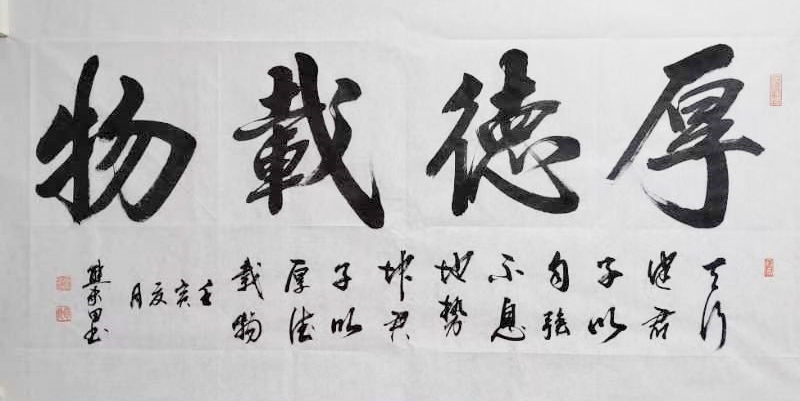 厚德載物
天行
健君
子以
自強
不息
地勢
坤君
子以
厚德
載物
壬
寅
夏
月